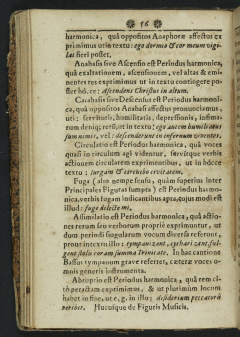 56
harmonica, quâ oppositos Anaphoræ affectus ex
primimus ut in textu: ego dormio & cor meum vigi-
lat fieri potest.
Anabasis sive Ascensio est Periodus harmonica,
quâ exaltationem, ascensionem, vel altas & emi-
nentes res exprimimus ut in textu contingere po-
test hoc: Ascendens Christus in altum.
Catabasis sive Descensus est Periodus harmoni-
ca, quâ oppositos Anabasi affectus pronunciamus,
uti: servitutis, humilitatis, depressionis, infima-
rum deniq; rerū, ut in textu: ego autem humiliatus
sum nimis, vel: descenderunt in infernum viventes.
Circulatio est Periodus harmonica, quâ voces
quasi in circulum agi videntur, servitque verbis
actionem circularem exprimentibus, ut in hocce
textu: surgam & circuibo civitatem.
Fuga (abs nempe sensu, quàm superius inter
Principales Figuras sumpta) est Periodus harmo-
nica, verbis fugam indicantibus apta, cujus modi est
illud: fuge dilecte mi.
Assimilatio est Periodus harmonica, quâ actio-
nes rerum seu verborum propriè exprimuntur, ut
dum periodi singularum vocum diversa referunt,
prout in textu illo: tympanizant, cytharizant, ful-
gent stolis coram summa Trinitate, In hac cantione
Bassus tympanum grave referret, cæteræ voces o-
mnis generis instrumenta.
Abruptio est Periodus harmonica, quâ rem ci-
tò peractam exprimimus, & ut plurimùm locum
habet in fine, ut e, g. in illo: desiderium peccatorū
peribit. Hucusque de Figuris Musicis.